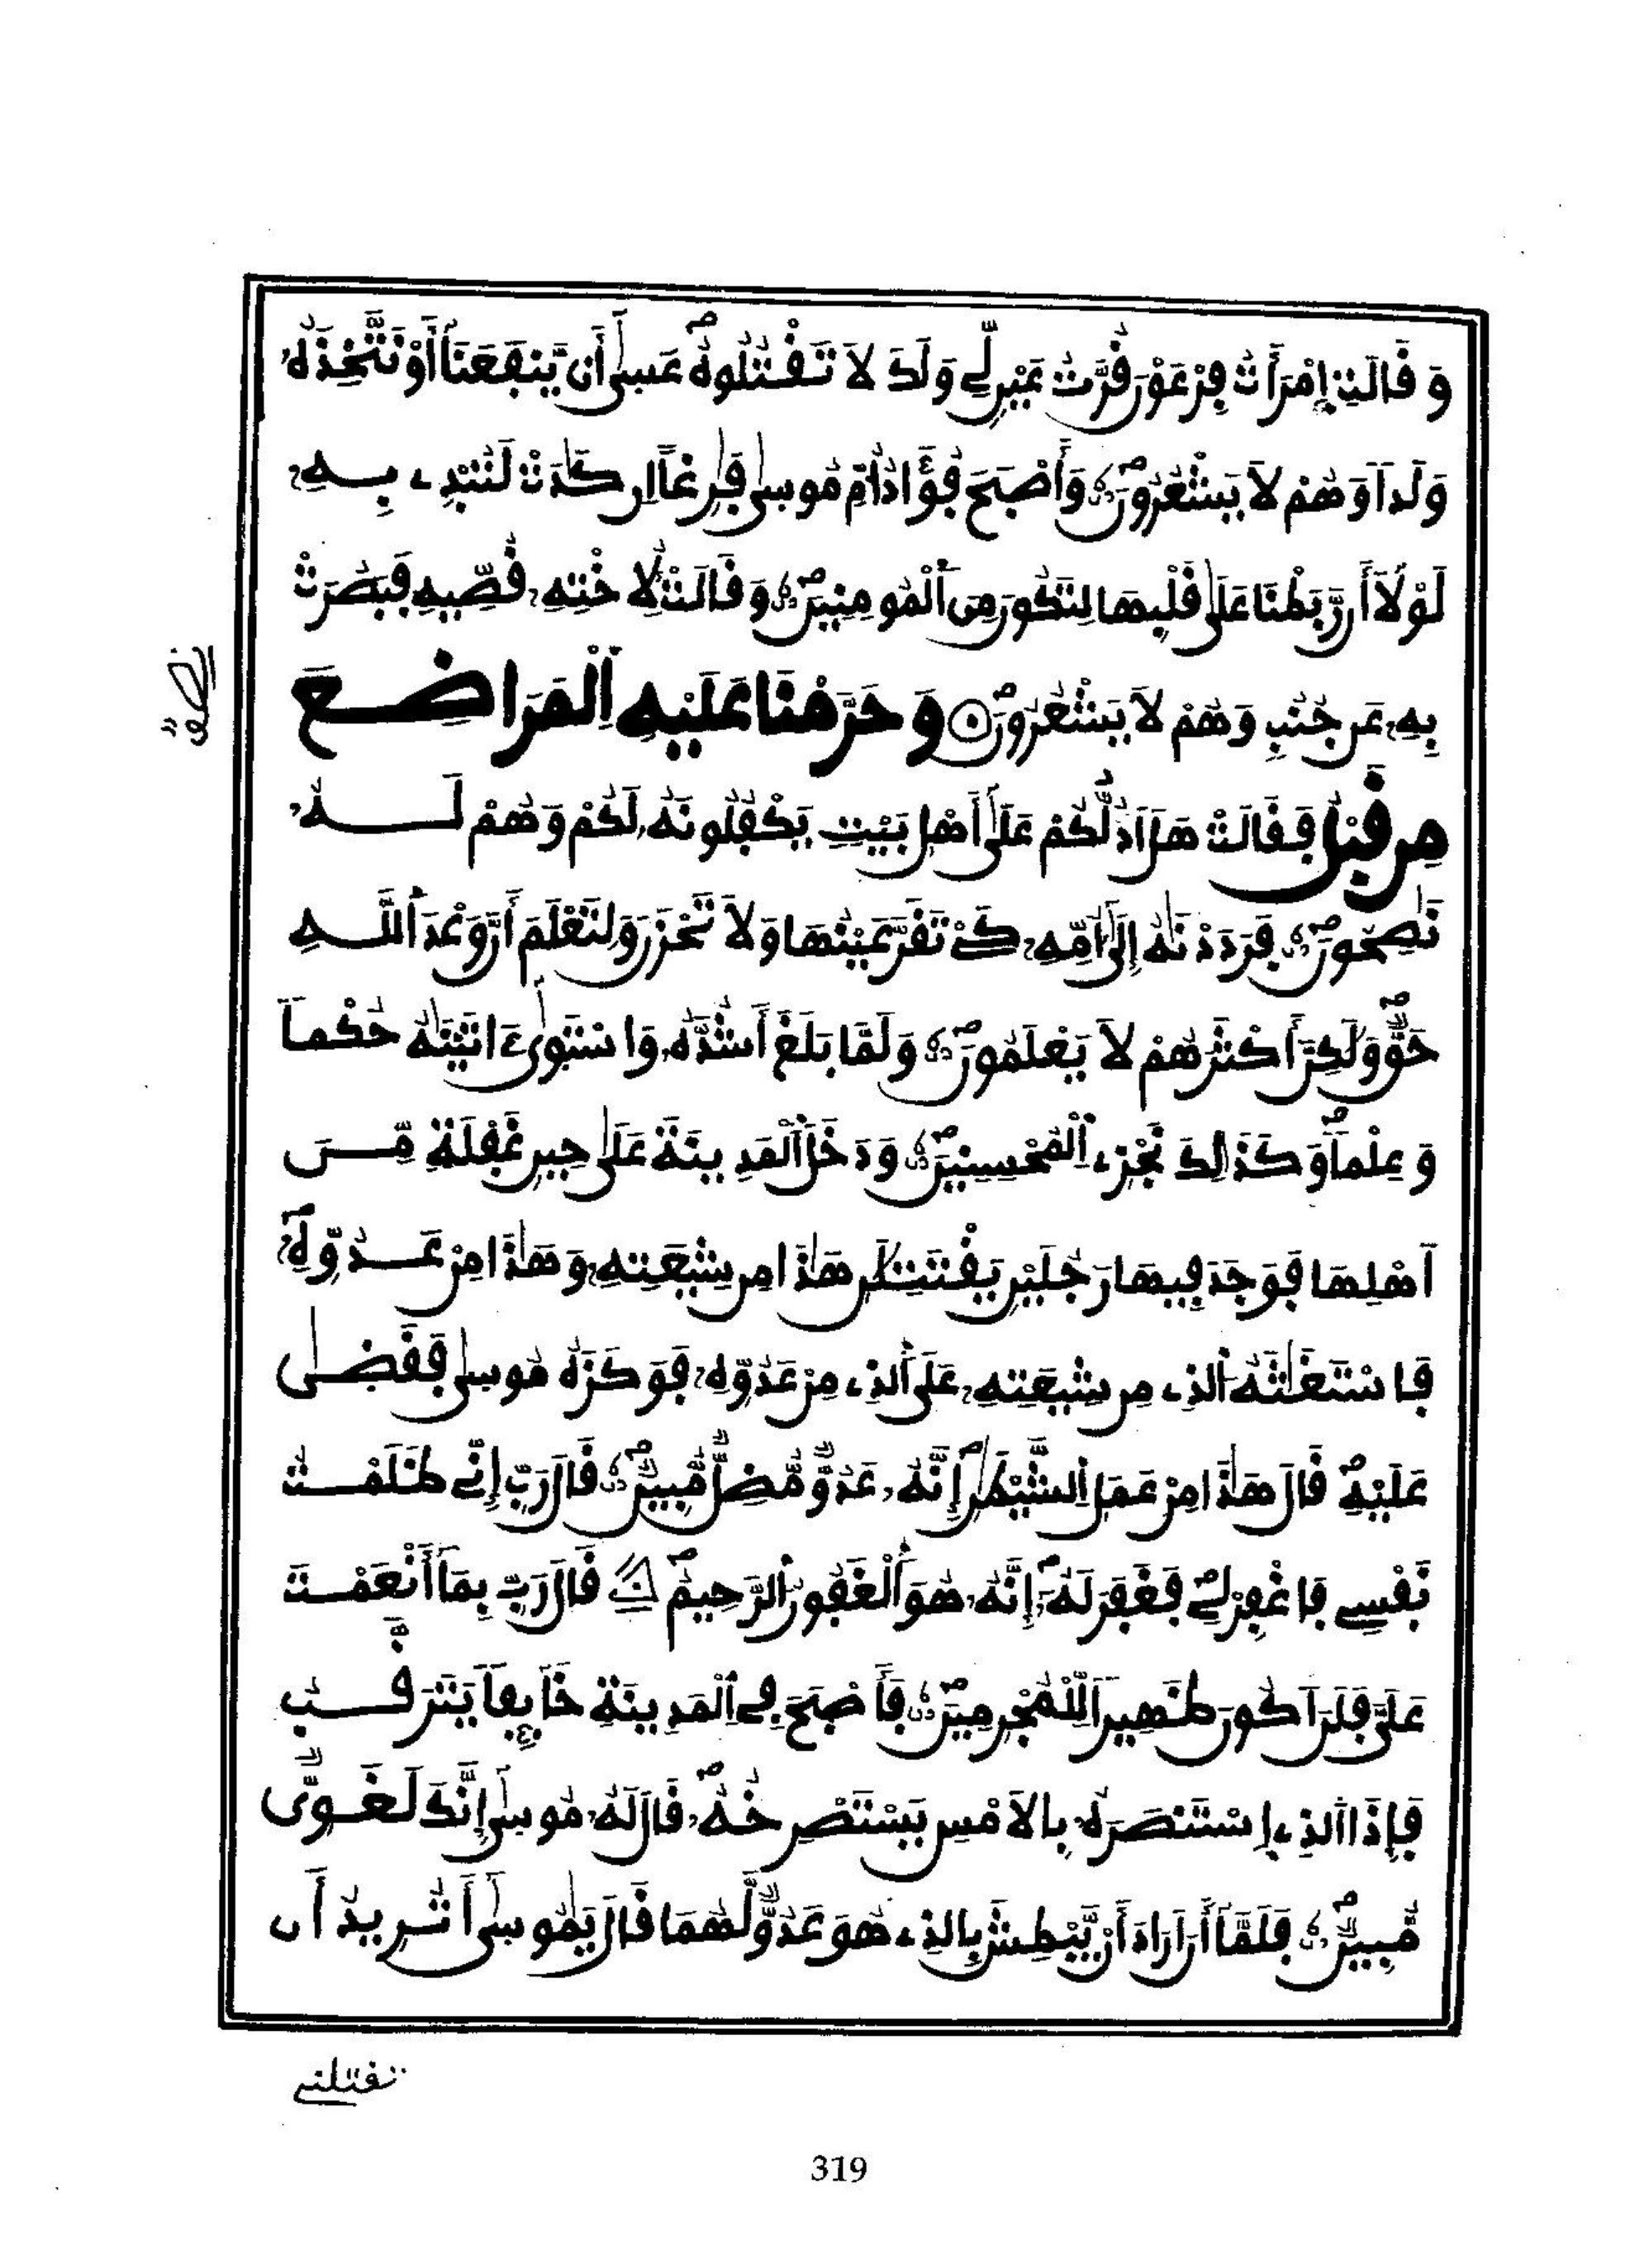 وَقَالَتِ اِمْرَأَتُ فِرْعَوْنَ قُرَّتُ عَيْنٍ لِّي وَلَكَ لَا تَقْتُلُوهُ عَسَىٰ أَنْ يَّنفَعَنَا أَوْ نَتَّخِذَهُ
وَلَداً وَهُمْ لَا يَشْعُرُونَ وَأَصْبَحَ فُؤَادُ أُمِّ مُوسَىٰ فَٰرِغاً اِن كَادَتْ لَتُبْدِے بِهِ
لَوْلَا أَن رَّبَطْنَا عَلَىٰ قَلْبِهَا لِتَكُونَ مِنَ اَلْمُومِنِينَ وَقَالَتْ لُاخْتِهِ قُصِّيهِ فَبَصُرَتْ
بِهِ عَن جُنُبٍ وَهُمْ لَا يَشْعُرُونَ وَحَرَّمْنَا عَلَيْهِ اِلْمَرَاضِعَ
مِن قَبْلُ فَقَالَتْ هَلَ اَدُلُّكُمْ عَلَىٰ أَهْلِ بَيْتٍ يَكْفُلُونَهُ لَكُمْ وَهُمْ لَهُ
نَٰصِحُونَ فَرَدَدْنَٰهُ إِلَىٰ أُمِّهِ كَےْ تَقَرَّ عَيْنُهَا وَلَا تَحْزَنَ وَلِتَعْلَمَ أَنَّ وَعْدَ اَللَّهِ
حَقٌّ وَلَٰكِنَّ أَكْثَرَهُمْ لَا يَعْلَمُونَ وَلَمَّا بَلَغَ أَشُدَّهُ وَاسْتَوَىٰ ءَاتَيْنَٰهُ حُكْماً
وَعِلْماً وَكَذَٰلِكَ نَجْزِے اِلْمُحْسِنِينَ وَدَخَلَ اَلْمَدِينَةَ عَلَىٰ حِينِ غَفْلَةٍ مِّنَ
اَهْلِهَا فَوَجَدَ فِيهَا رَجُلَيْنِ يَقْتَتِلَٰنِ هَٰذَا مِن شِيعَتِهِ وَهَٰذَا مِنْ عَدُوِّهِ
فَاسْتَغَٰثَهُ اُلذِے مِن شِيعَتِهِ عَلَى اَلذِے مِنْ عَدُوِّهِ فَوَكَزَهُ مُوسَىٰ فَقَضَىٰ
عَلَيْهِ قَالَ هَٰذَا مِنْ عَمَلِ اِلشَّيْطَٰنِ إِنَّهُ عَدُوٌّ مُّضِلٌّ مُّبِينٌ قَالَ رَبِّ إِنِّي ظَلَمْتُ
نَفْسِي فَاغْفِرْ لِي فَغَفَرَ لَهُ إِنَّهُ هُوَ اَلْغَفُورُ اُلرَّحِيمُ قَالَ رَبِّ بِمَا أَنْعَمْتَ
عَلَيَّ فَلَنَ اَكُونَ ظَهِيراً لِّلْمُجْرِمِينَ فَأَصْبَحَ فِي اِلْمَدِينَةِ خَائِفاً يَتَرَقَّبُ
فَإِذَا اَلذِے اِسْتَنصَرَهُ بِالَامْسِ يَسْتَصْرِخُهُ قَالَ لَهُ مُوسَىٰ إِنَّكَ لَغَوِيٌّ
مُّبِينٌ فَلَمَّا أَنَ اَرَادَ أَنْ يَّبْطِشَ بِالذِے هُوَ عَدُوٌّ لَّهُمَا قَالَ يَٰمُوسَىٰ أَتُرِيدُ أَن
تقتلني
319